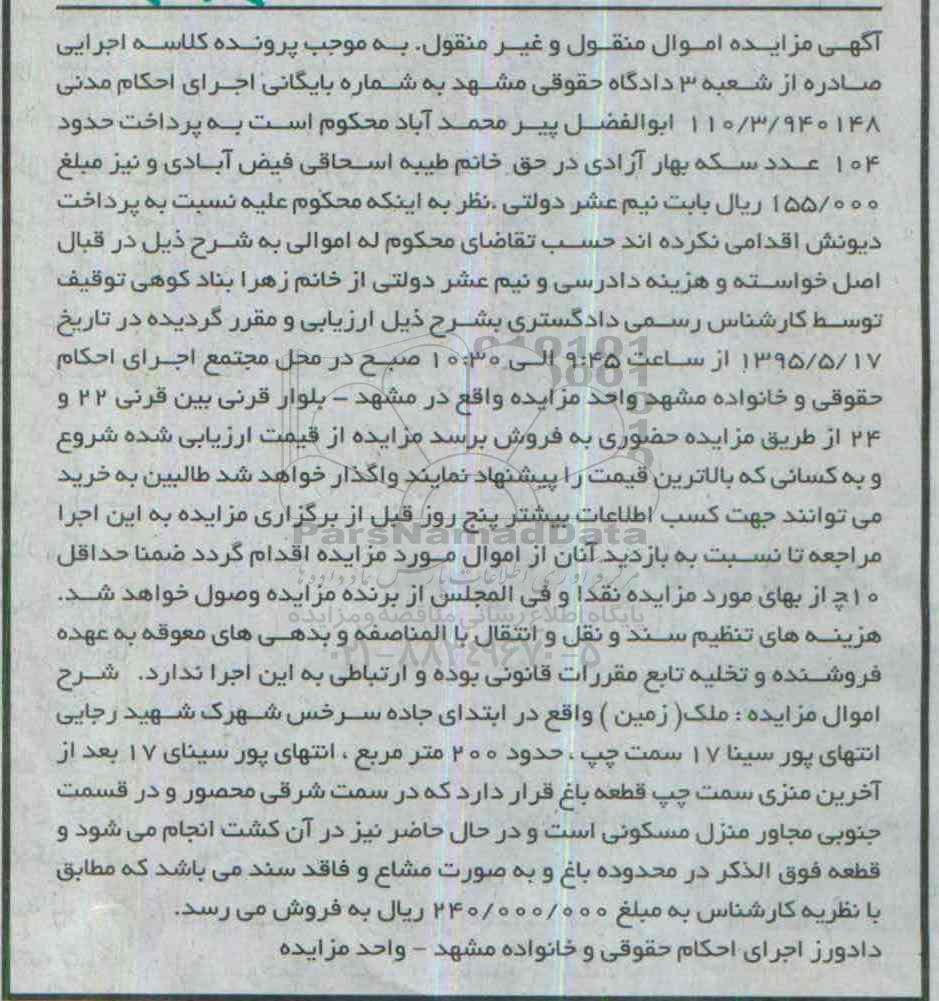 آگهی مزایده اموال منقول و غیر منقول. به موجب پرونده کلاسه اجرایی
صادره از شعبه ۳ دادگاه حقوقی مشهد به شماره بایگانی اجرای احکام مدنی
۱۱۰/۳/۹۴۰۱۴۸ ابوالفضل پیر محمد آباد محکوم است به پرداخت حدود
۱۰۴ عدد سکه بهار آزادی در حق خانم طیبه اسحاقی فیض آبادی و نیز مبلغ
۱۵۵/۰۰۰ ریال بابت نیم عشر دولتی .نظر به اینکه محکوم علیه نسبت به پرداخت
دیونش اقدامی نکرده اند حسب تقاضای محکوم له اموالی به شرح ذیل در قبال
اصل خواسته و هزینه دادرسی و نیم عشر دولتی از خانم زهرا بناد کوهی توقیف
توسط کارشناس رسمی دادگستری بشرح ذیل ارزیابی و مقرر گردیده در تاریخ
۱۳۹۵/۵/۱۷ از ساعت ۹:۴۵ الی ۱۰:۳۰ صبح در محل مجتمع اجرای احکام
حقوقی و خانواده مشهد واحد مزایده واقع در مشهد – بلوار قرنی بین قرنی ۲۲ و
۲۴ از طریق مزایده حضوری به فروش برسد مزایده از قیمت ارزیابی شده شروع
و به کسانی که بالاترین قیمت را پیشنهاد نمایند واگذار خواهد شد طالبین به خرید
می توانند جهت کسب اطلاعات بیشتر پنج روز قبل از برگزاری مزایده به این اجرا
ParsNamadData
مراجعه تا نسبت به بازدید آنان از اموال مورد مزایده اقدام گردد ضمنا حداقل
۱۰چ از بهای مورد مزایده نقدا و فی المجلس از برنده مزایده وصول خواهد شد.
پایگاه اطلاع رسانی مناقصه و مزایده
هزینه های تنظیم سند و نقل و انتقال با المناصفه و بدهی های معوقه به عهده
فروشنده و تخلیه تابع مقررات قانونی بوده و ارتباطی به این اجرا ندارد. شرح
اموال مزایده : ملک( زمین ) واقع در ابتدای جاده سرخس شهرک شهید رجایی
انتهای پور سینا ۱۷ سمت چپ ، حدود ۲۰۰ متر مربع ، انتهای پور سینای ۱۷ بعد از
آخرین منزی سمت چپ قطعه باغ قرار دارد که در سمت شرقی محصور و در قسمت
جنوبی مجاور منزل مسکونی است و در حال حاضر نیز در آن کشت انجام می شود و
قطعه فوق الذکر در محدوده باغ و به صورت مشاع و فاقد سند می باشد که مطابق
با نظریه کارشناس به مبلغ ۲۴۰/۰۰۰/۰۰۰ ریال به فروش می رسد.
دادورز اجرای احکام حقوقی و خانواده مشهد – واحد مزایده